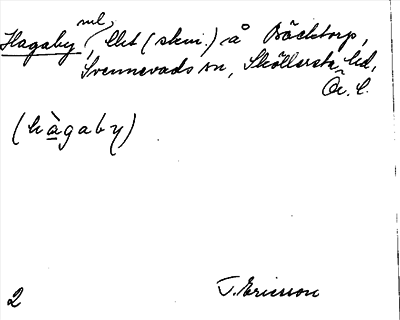 nul
Hagaby, lht (skeri.) å Bäcktorp,
Svennevads sn, Sköllersta hd,
Ör. l.
(hàgaby)
2 T. Ericsson